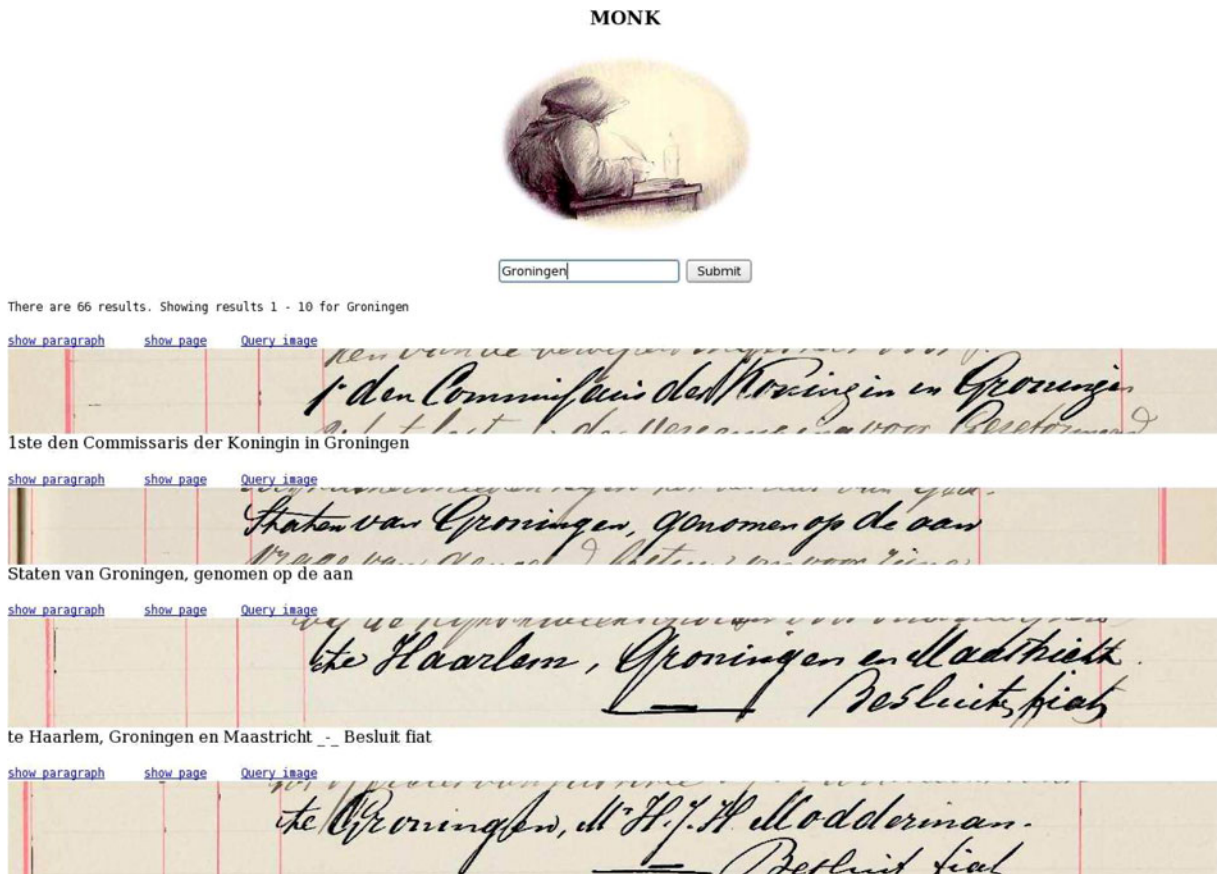 MONK
Groningen Submit
There are 66 results. Showing results 1 - 10 for Groningen
show paragraph show page Query image
1e den Commissaris der Koningin in Groningen
1ste den Commissaris der Koningin in Groningen
show paragraph show page Query image
Staten van Groningen, genomen op de aan
Staten van Groningen, genomen op de aan
show paragraph show page Query image
te Haarlem, Groningen en Maastricht.
Besluit fiat
te Haarlem, Groningen en Maastricht _-_ Besluit fiat
show paragraph show page Query image
te Groningen, Mr H. J. H. Modderman.
Besluit fiat